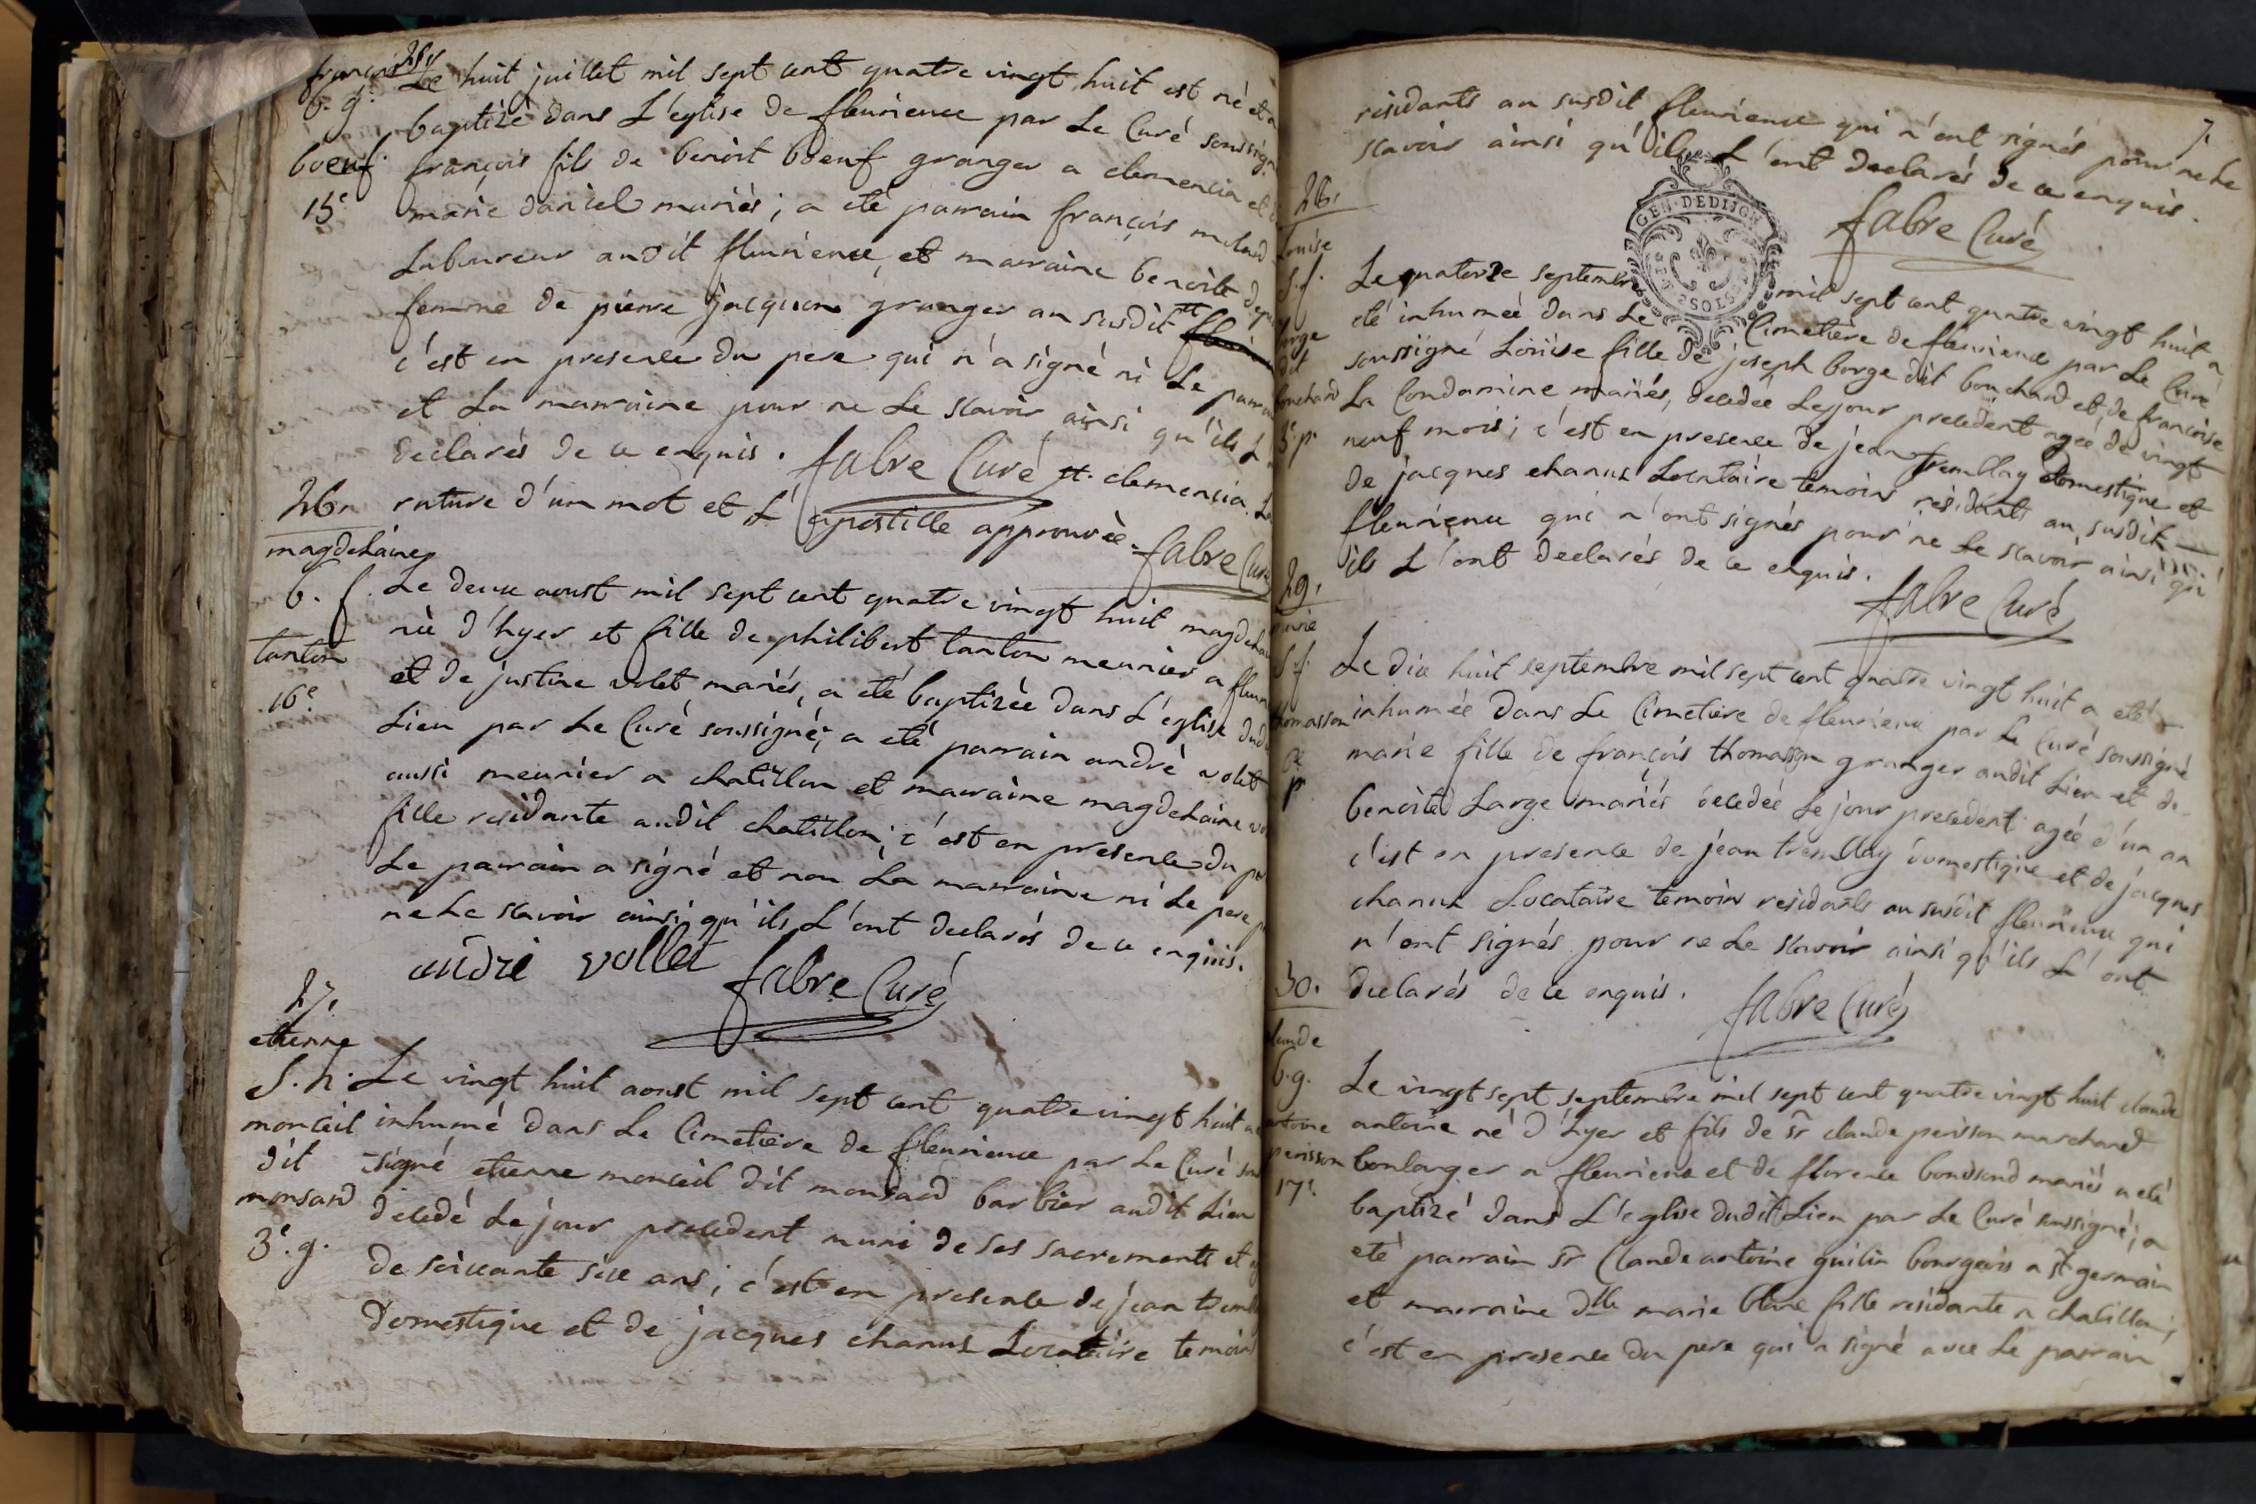 25.
françois
b. g.
boeuf
15e
Le huit juillet mil sept cent quatre vingt huit est né et a
baptizé dans L'eglise de fleurieux par Le Curé soussigné
françois fils de benoit boeuf granger a clemencia et de
marie daniel mariés; a été parrain françois
Laboureur audit fleurieux, et marraine benoite
femme de pierre jacquon granger au susdit
c'est en presence du pere qui n'a signé ni Le parrain
et La marraine pour ne Le scavoir ainsi qu'ils L'
declarés de ce enquis. fabre Curé clemencia. La
rature d'un mot et L'apostille approuvée. fabre Curé
26.
magdelaine
b. f.
tanton
16e
Le deux aoust mil sept cent quatre vingt huit magdelaine
née d'hyer et fille de philibert tanton meunier a fleurieux
et de justine volet mariés, a été baptizée dans L'eglise dudit
Lieu par Le Curé soussigné; a eté parrain andré volet
aussi meunier a chatillon et marraine magdelaine
fille residante audit chatillon; c'est en presence du pere
Le parrain a signé et non La marraine ni Le pere
ne Le scavoir ainsi qu'ils L'ont declarés de ce enquis.
andre vollet fabre Curé
27.
etienne
S. h.
monceil
dit
monsard
3e. g.
Le vingt huit aoust mil sept cent quatre vingt huit a
inhumé dans Le Cimetière de fleurieux par Le Curé sous
signé etienne monceil dit monsard barbier audit Lieu
decedé Le jour precedent muni de ses sacrements et
de soixante six ans; c'est en presence de jean tremblay
domestique et de jacques chanus Locataire temoins
7.
residants au susdit fleurieux qui n'ont signés pour ne Le
scavoir ainsi qu'ils L'ont declarés de ce enquis.
fabre Curé
GEN. DE DIJON
28.
Louise
S. f.
borge
dit
bouchard
3e p.
Le quatorze septembre mil sept cent quatre vingt huit a
été inhumée dans Le Cimetière de fleurieux par Le Curé
soussigné Loüise fille de joseph borge dit bouchard et de françoise
La Condamine mariés, decedée Le jour precedent agée de vingt
neuf mois; c'est en presence de jean tremblay domestique et
de jacques chanus Locataire temoins residants au susdit
fleurieux qui n'ont signés pour ne Le scavoir ainsi qu'
ils L'ont declarés de ce enquis.
fabre Curé
29.
marie
S. f.
thomasson
p.
Le dix huit septembre mil sept cent quatre vingt huit a eté
inhumée dans Le Cimetiere de fleurieux par Le Curé soussigné
marie fille de françois thomasson granger audit Lieu et de
benoite Large mariés decedée Le jour precedent agée d'un an
c'est en presence de jean tremblay domestique et de jacques
chanus Locataire temoins residants au susdit fleurieux qui
n'ont signés pour ne Le scavoir ainsi qu'ils L'ont
declarés de ce enquis. fabre Curé
30.
claude
b. g.
antoine
perisson
17e.
Le vingt sept septembre mil sept cent quatre vingt huit claude
antoine né d'hyer et fils de sr claude perisson marchand
boulanger a fleurieux et de florence mariés a eté
baptizé dans L'eglise dudit Lieu par Le Curé soussigné; a
eté parrain sr Claude antoine guilin bourgeois a st germain
et marraine dlle marie blanc fille residante a chatillon;
c'est en presence du pere qui a signé avec Le parrain